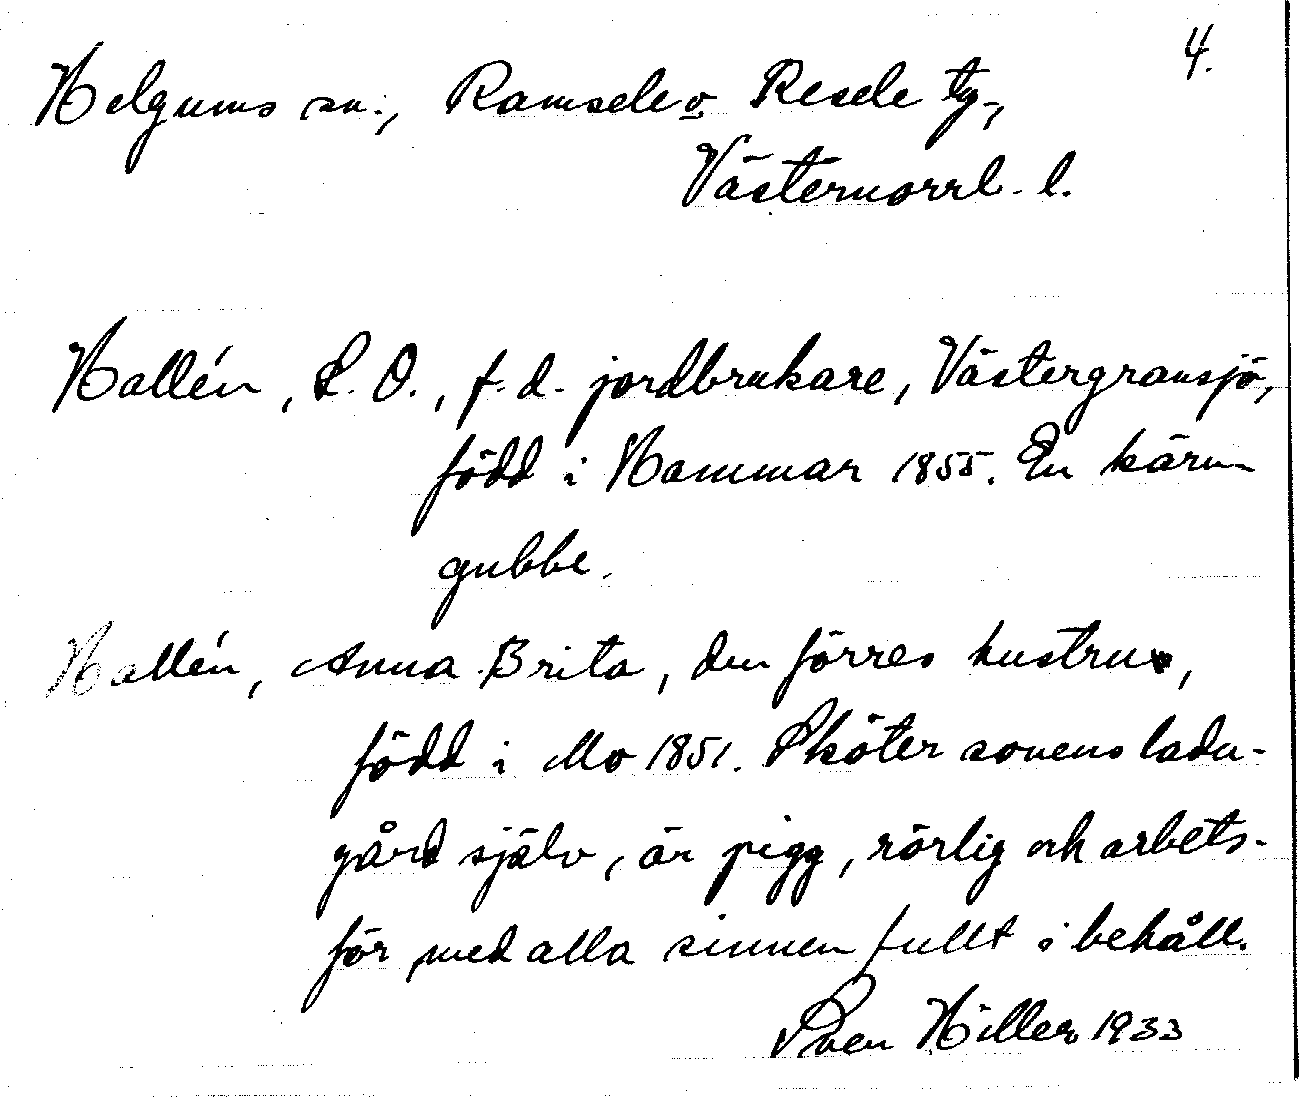 4.
Helgums sn., Ramsele o. Resele tg.,
Västernorrl. l.
Hallén, L. O., f. d. jordbrukare, Västergransjö,
född i Hammar 1855. En kärn
gubbe.
Hallén, Anna Brita, den förres hustru,
född i Mo 1851. Sköter sonens ladu-
gård själv, är pigg, rörlig och arbets-
för med alla sinnen fullt i behåll.
Sven Hiller 1933